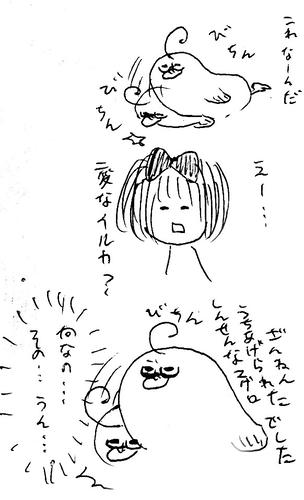 これなーんだ
びちん
びちん
えー…
変なイルカ?
ざんねんだでした
うちあげられた
しんせんなマグロ
びちん
何なの…
その…うん…